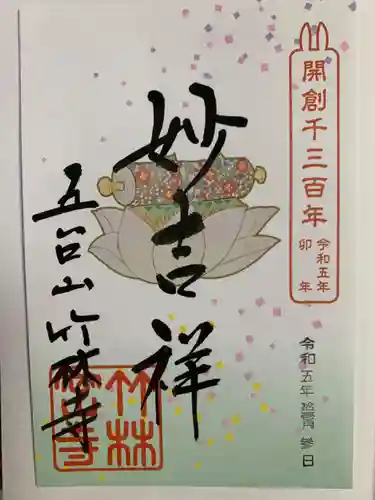 開創千三百年
令和五年
卯年
令和五年拾壹月參日
妙吉祥
五台山竹林寺
竹林
寺